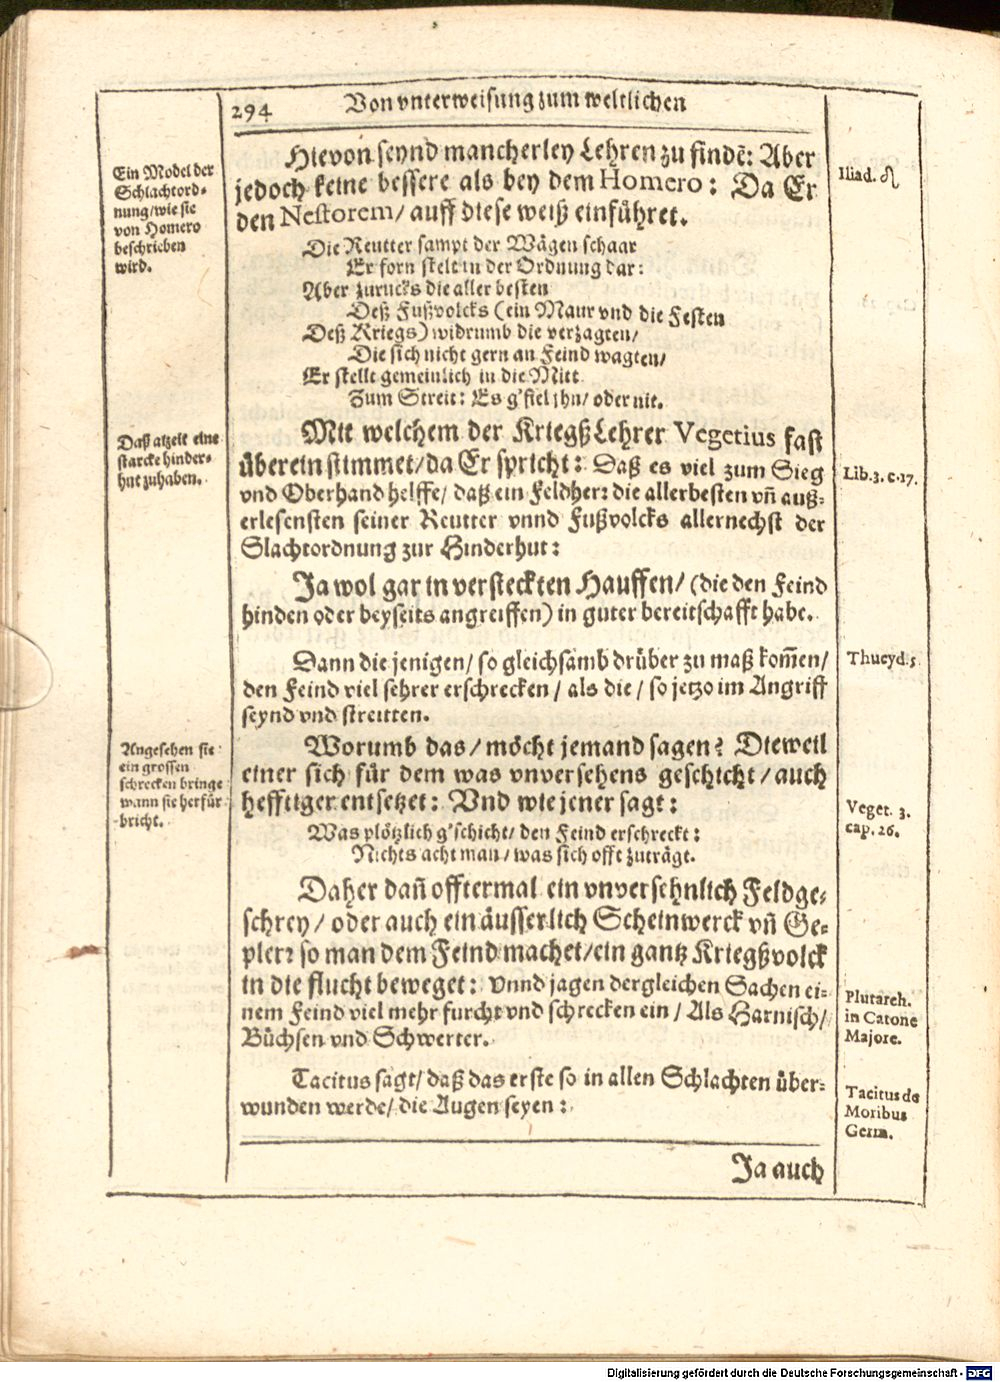 294 Von vnterweisung zum weltlichen
Hievon seynd mancherley Lehren zu findē: Aber
jedoch keine bessere als bey dem Homero: Da Er
den Nestorem/ auff diese weiß einführet.
Ein Model der
Schlachtord-
nung/wie sie
von Homero
beschrieben
wird.
Iliad. ♌
Die Reutter sampt der Wägen schaar
Er forn stelt in der Ordnung dar:
Aber zurucks die aller besten
Deß Fußvolcks (ein Maur vnd die Festen
Deß Kriegs) widrumb die verzagten/
Die sich nicht gern an Feind wagten/
Er stellt gemeinlich in die Mitt
Zum Streit: Es g'fiel jhn/ oder nit.
Mit welchem der KriegßLehrer Vegetius fast
übereinstimmet/da Er spricht: Daß es viel zum Sieg
vnd Oberhand helffe/ daß ein Feldherꝛ die allerbesten vñ auß-
erlesensten seiner Reutter vnnd Fußvolcks allernechst der
Slachtordnung zur Hinderhut:
Daß alzeit eine
starcke hinder-
hut zuhaben.
Lib.3. c.17.
Ja wol gar in versteckten Hauffen/ (die den Feind
hinden oder beyseits angreiffen) in guter bereitschafft habe.
Dann die jenigen/ so gleichsamb drüber zu maß kom̄en/
den Feind viel sehrer erschrecken/ als die/ so jetzo im Angriff
seynd vnd streitten.
Thucyd.5
Worumb das/ möcht jemand sagen? Dieweil
einer sich für dem was vnversehens geschicht/ auch
hefftiger entsetzet: Vnd wie jener sagt:
Angesehen sie
ein grossen
schrecken bringe
wann sie herfür
bricht.
Veget. 3.
cap. 26.
Was plötzlich g'schicht/ den Feind erschreckt:
Nichts acht man/ was sich offt zuträgt.
Daher dañ offtermal ein vnversehnlich Feldge-
schrey/ oder auch ein äusserlich Scheinwerck vñ Ge-
plerꝛ so man dem Feind machet/ein gantz Kriegßvolck
in die flucht beweget: vnnd jagen dergleichen Sachen ei-
nem Feind viel mehr furcht vnd schrecken ein/ Als Harnisch/
Büchsen vnd Schwerter.
Plutarch.
in Catone
Majore.
Tacitus sagt/ daß das erste so in allen Schlachten über-
wunden werde/ die Augen seyen:
Tacitus de
Moribus
Germ.
Ja auch
Digitalisierung gefördert durch die Deutsche Forschungsgemeinschaft - DFG